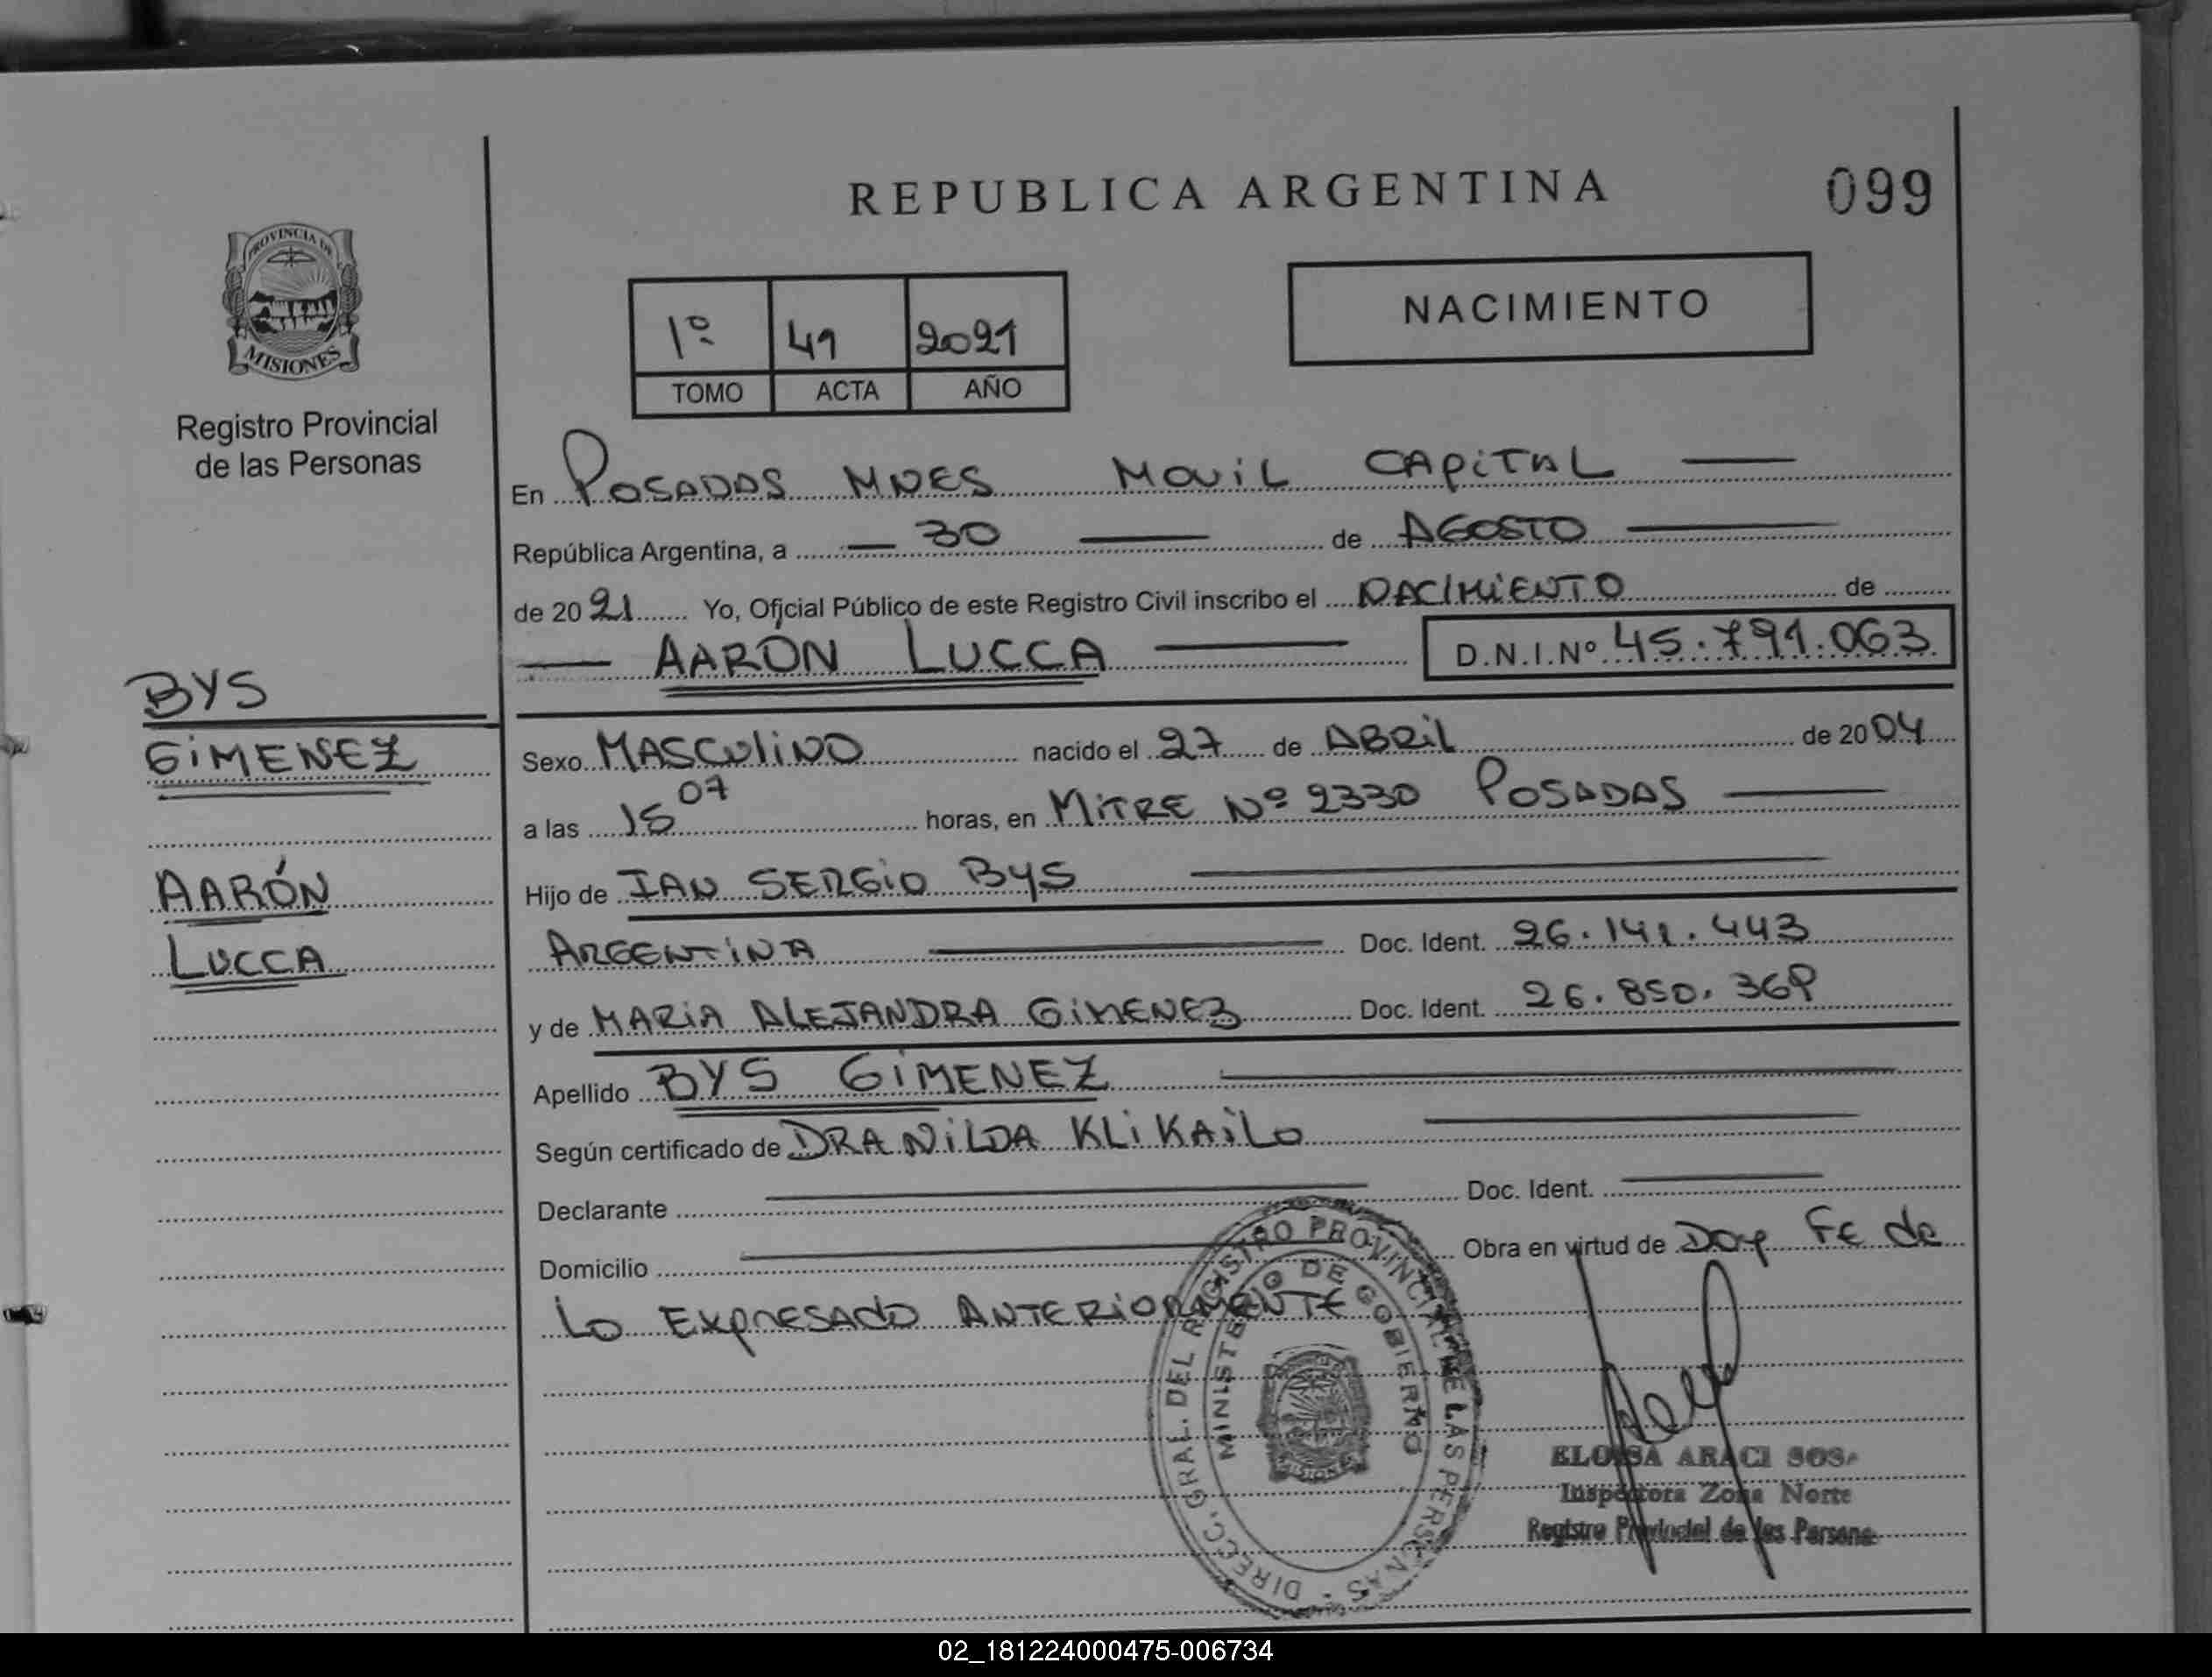 REPUBLICA ARGENTINA
099
PROVINCIA DE
MISIONES
Registro Provincial
de las Personas
NACIMIENTO
1º 41 2021
TOMO ACTA AÑO
En POSADAS MNES MOVIL CAPITAL
República Argentina, a 30 de AGOSTO
de 2021 Yo, Oficial Público de este Registro Civil inscribo el NACIMIENTO de
AARON LUCCA D.N.I.Nº 45.791.063
BYS
GIMENEZ
AARÓN
LUCCA
Sexo MASCULINO nacido el 27 de ABRIL de 2004
a las 15 07 horas, en MITRE Nº 2330 POSADAS
Hijo de IAN SERGIO BYS
ARGENTINA Doc. Ident. 26.141.443
y de MARIA ALEJANDRA GIMENEZ Doc. Ident. 26.850.369
Apellido BYS GIMENEZ
Según certificado de DRA NILDA KLIKAILO
Declarante Doc. Ident.
Domicilio Obra en virtud de Doy FE de
Lo EXPRESADO ANTERIORMENTE
DIRECC. GRAL. DEL REGISTRO PROVINCIAL DE LAS PERSONAS
MINISTERIO DE GOBIERNO
MISIONES
ELOISA ARACI SOSA
Inspectora Zona Norte
Registro Provincial de las Persona
02_181224000475-006734